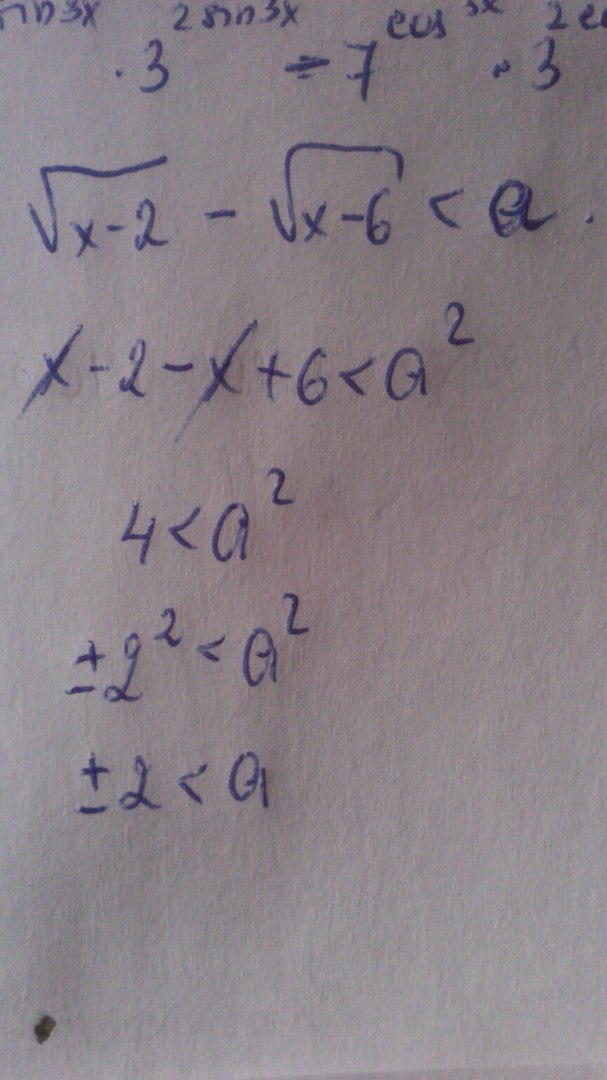 sin3x 2sin3x cos 3x
· 3 = 7 · 3
√x-2 - √x-6 < a.
x-2-x+6<a²
4<a²
±2²<a²
±2<a